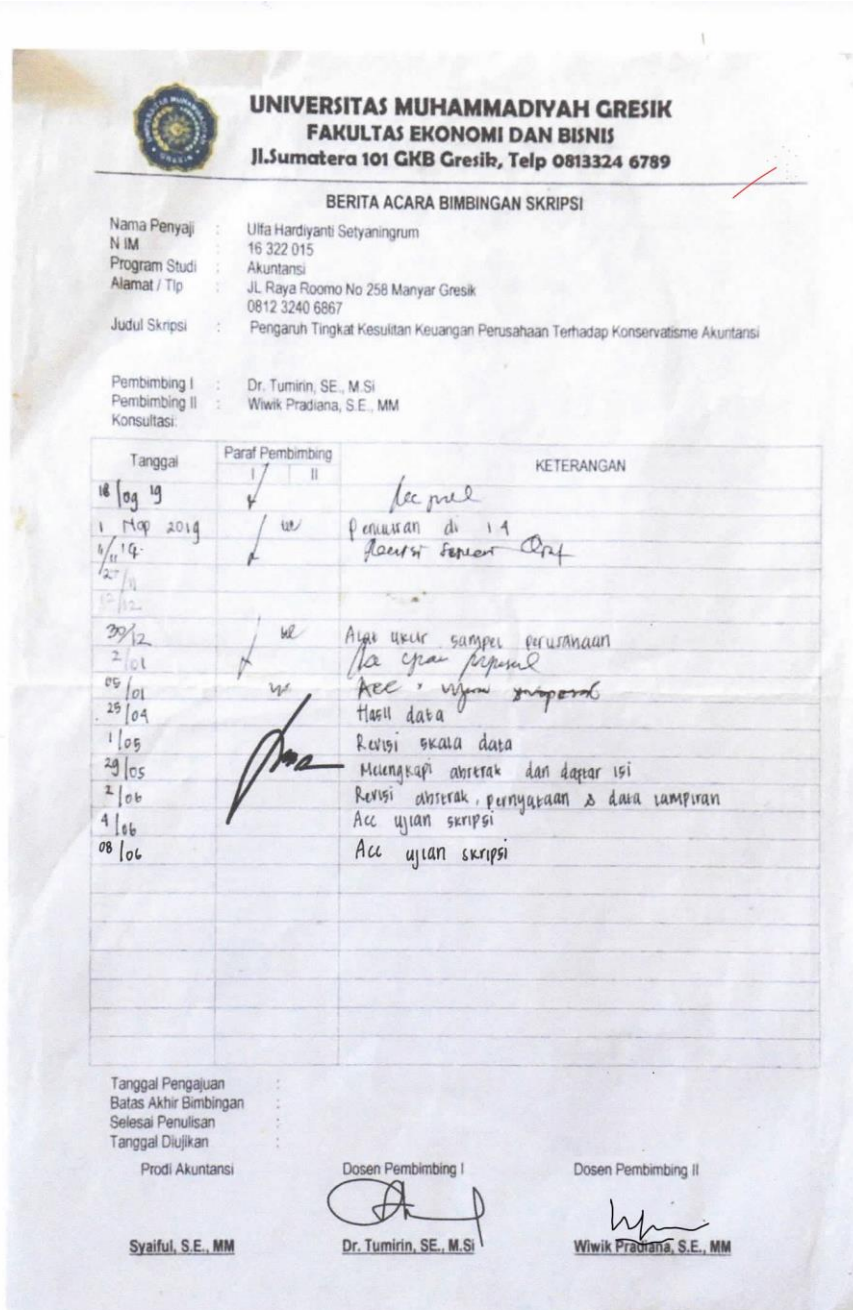 UNIVERSITAS MUHAMMADIYAH GRESIK
FAKULTAS EKONOMI DAN BISNIS
Jl.Sumatera 101 GKB Gresik, Telp 0813324 6789
BERITA ACARA BIMBINGAN SKRIPSI
Nama Penyaji : Ulfa Hardiyanti Setyaningrum
N IM : 16 322 015
Program Studi : Akuntansi
Alamat / Tlp : JL Raya Roomo No 258 Manyar Gresik
0812 3240 6867
Judul Skripsi : Pengaruh Tingkat Kesulitan Keuangan Perusahaan Terhadap Konservatisme Akuntansi
Pembimbing I : Dr. Tumirin, SE., M.Si
Pembimbing II : Wiwik Pradiana, S.E., MM
Konsultasi:
Tanggal Paraf Pembimbing KETERANGAN
I II
18/09 19
1 Nop 2019 di 14
27/11
30/12 Alat ukur sampel perusahaan
2/01
05/01 Acc
25/04 Hasil data
1/05 Revisi skala data
29/05 Melengkapi abstrak dan daptar isi
2/06 Revisi abstrak, pernyataan & data lampiran
4/06 Acc ujian skripsi
08/06 Acc ujian skripsi
Tanggal Pengajuan :
Batas Akhir Bimbingan :
Selesai Penulisan :
Tanggal Diujikan :
Prodi Akuntansi Dosen Pembimbing I Dosen Pembimbing II
Syaiful, S.E., MM Dr. Tumirin, SE., M.Si Wiwik Pradiana, S.E., MM